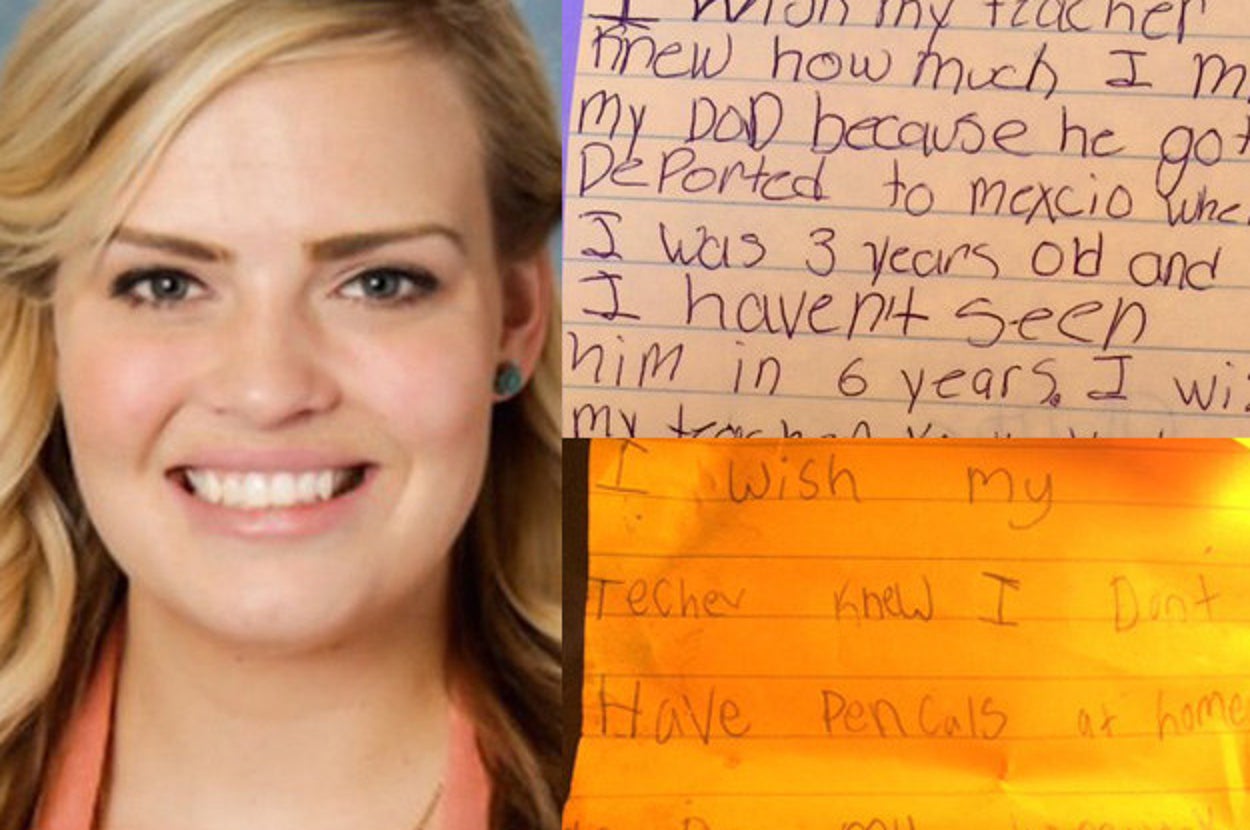 I wish my teacher
knew how much I m
my DaD because he got
DePorted to mexcio whe
I was 3 years old and
I haven't seen
him in 6 years. I wi
my
I wish my
Techer knew I Dont
Have Pencals at home
my